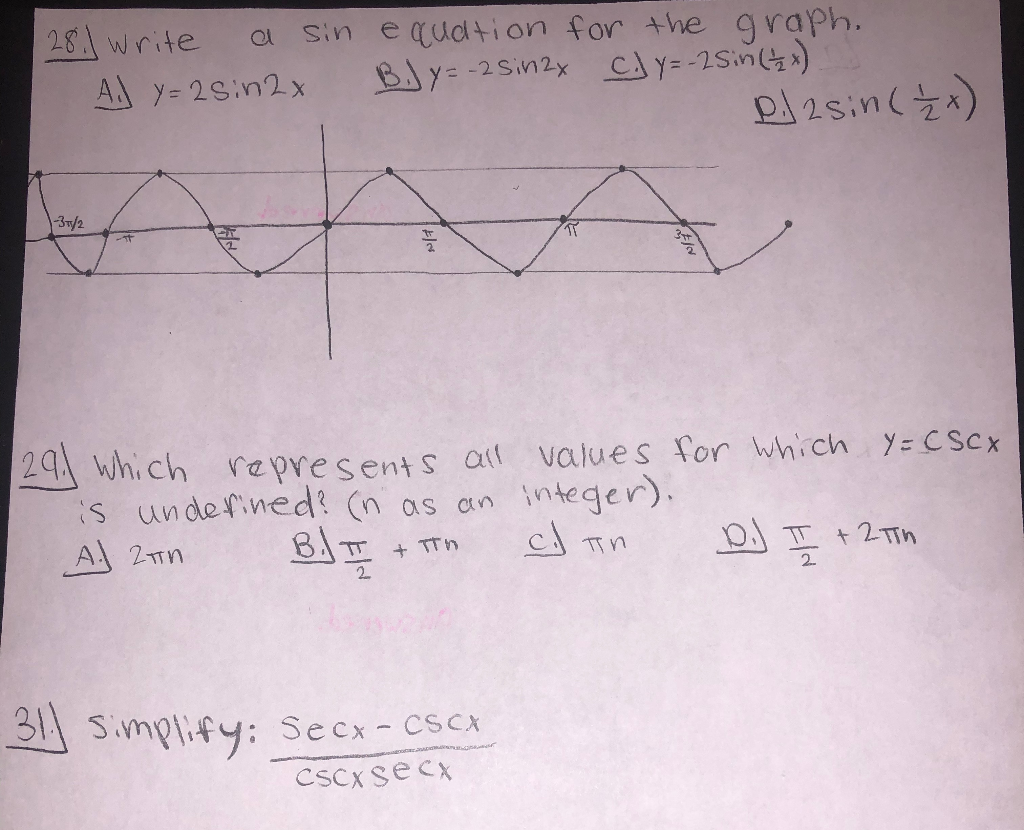 28.) Write a sin equation for the graph.
A.) y=2sin2x B.) y=-2sin2x C.) y=-2sin(½x)
D.) 2sin(½x)
-3π/2 -π -π/2 π/2 π 3π/2
29.) Which represents all values for which y=cscx
is undefined? (n as an integer).
A.) 2πn B.) π/2 + πn C.) πn D.) π/2 + 2πn
31.) Simplify: secx - cscx
cscxsecx